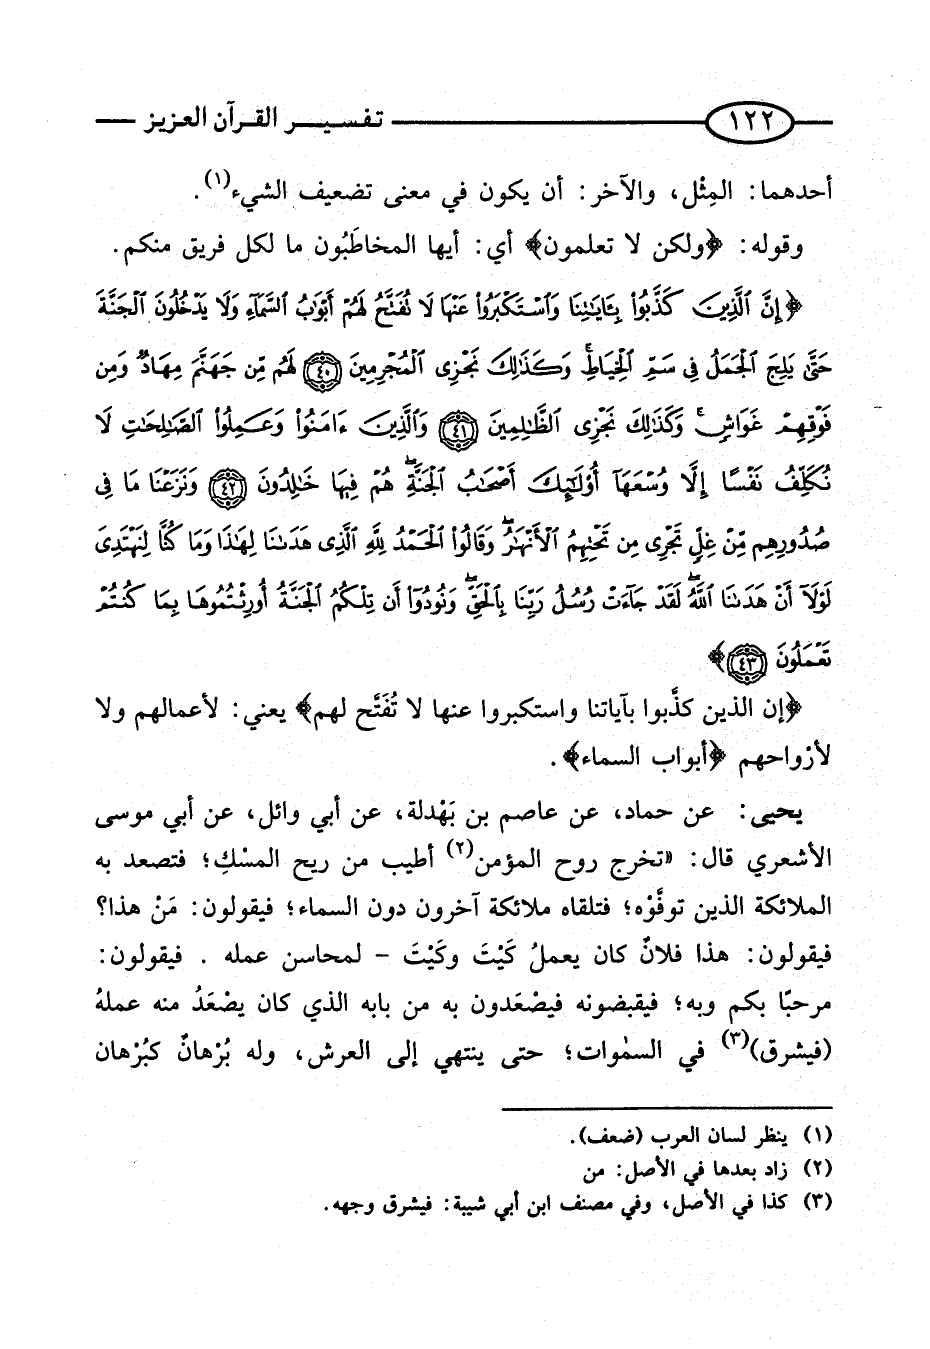 ١٢٢ تفسير القرآن العزيز
أحدهما: المِثْل، والآخر: أن يكون في معنى تضعيف الشيء(١).
وقوله: ﴿ولكن لا تعلمون﴾ أي: أيها المخاطَبُون ما لكل فريق منكم.
﴿إِنَّ ٱلَّذِينَ كَذَّبُوا۟ بِـَٔايَـٰتِنَا وَٱسْتَكْبَرُوا۟ عَنْهَا لَا تُفَتَّحُ لَهُمْ أَبْوَٰبُ ٱلسَّمَآءِ وَلَا يَدْخُلُونَ ٱلْجَنَّةَ
حَتَّىٰ يَلِجَ ٱلْجَمَلُ فِى سَمِّ ٱلْخِيَاطِ ۚ وَكَذَٰلِكَ نَجْزِى ٱلْمُجْرِمِينَ ٤٠ لَهُم مِّن جَهَنَّمَ مِهَادٌ وَمِن
فَوْقِهِمْ غَوَاشٍ ۚ وَكَذَٰلِكَ نَجْزِى ٱلظَّـٰلِمِينَ ٤١ وَٱلَّذِينَ ءَامَنُوا۟ وَعَمِلُوا۟ ٱلصَّـٰلِحَـٰتِ لَا
نُكَلِّفُ نَفْسًا إِلَّا وُسْعَهَآ أُو۟لَـٰٓئِكَ أَصْحَـٰبُ ٱلْجَنَّةِ ۖ هُمْ فِيهَا خَـٰلِدُونَ ٤٢ وَنَزَعْنَا مَا فِى
صُدُورِهِم مِّنْ غِلٍّ تَجْرِى مِن تَحْتِهِمُ ٱلْأَنْهَـٰرُ ۖ وَقَالُوا۟ ٱلْحَمْدُ لِلَّهِ ٱلَّذِى هَدَىٰنَا لِهَـٰذَا وَمَا كُنَّا لِنَهْتَدِىَ
لَوْلَآ أَنْ هَدَىٰنَا ٱللَّهُ ۖ لَقَدْ جَآءَتْ رُسُلُ رَبِّنَا بِٱلْحَقِّ ۖ وَنُودُوٓا۟ أَن تِلْكُمُ ٱلْجَنَّةُ أُورِثْتُمُوهَا بِمَا كُنتُمْ
تَعْمَلُونَ ٤٣﴾
﴿إن الذين كذَّبوا بآياتنا واستكبروا عنها لا تُفَتَّح لهم﴾ يعني: لأعمالهم ولا
لأرْواحهم ﴿أبواب السماء﴾.
يحيى: عن حماد، عن عاصم بن بَهْدلة، عن أبي وائل، عن أبي موسى
الأشعري قال: «تخرج روح المؤمن(٢) أطيب من ريح المسْكِ؛ فتصعد به
الملائكة الذين توفَّوْه؛ فتلقاه ملائكة آخرون دون السماء؛ فيقولون: مَنْ هذا؟
فيقولون: هذا فلانٌ كان يعملُ كَيْتَ وكَيْتَ - لمحاسن عمله . فيقولون:
مرحبًا بكم وبه؛ فيقبضونه فيصْعَدون به من بابه الذي كان يصْعَدُ منه عملهُ
(فيشرق)(٣) في السمٰوات؛ حتى ينتهي إلى العرش، وله بُرْهانٌ كبُرْهان
(١) ينظر لسان العرب (ضعف).
(٢) زاد بعدها في الأصل: من
(٣) كذا في الأصل، وفي مصنف ابن أبي شيبة: فيشرق وجهه.